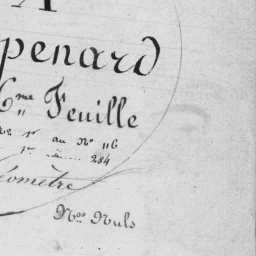 A
penard
6me Feuille
1er au No 116
1er ..... 284
éomètre
Nos Nuls